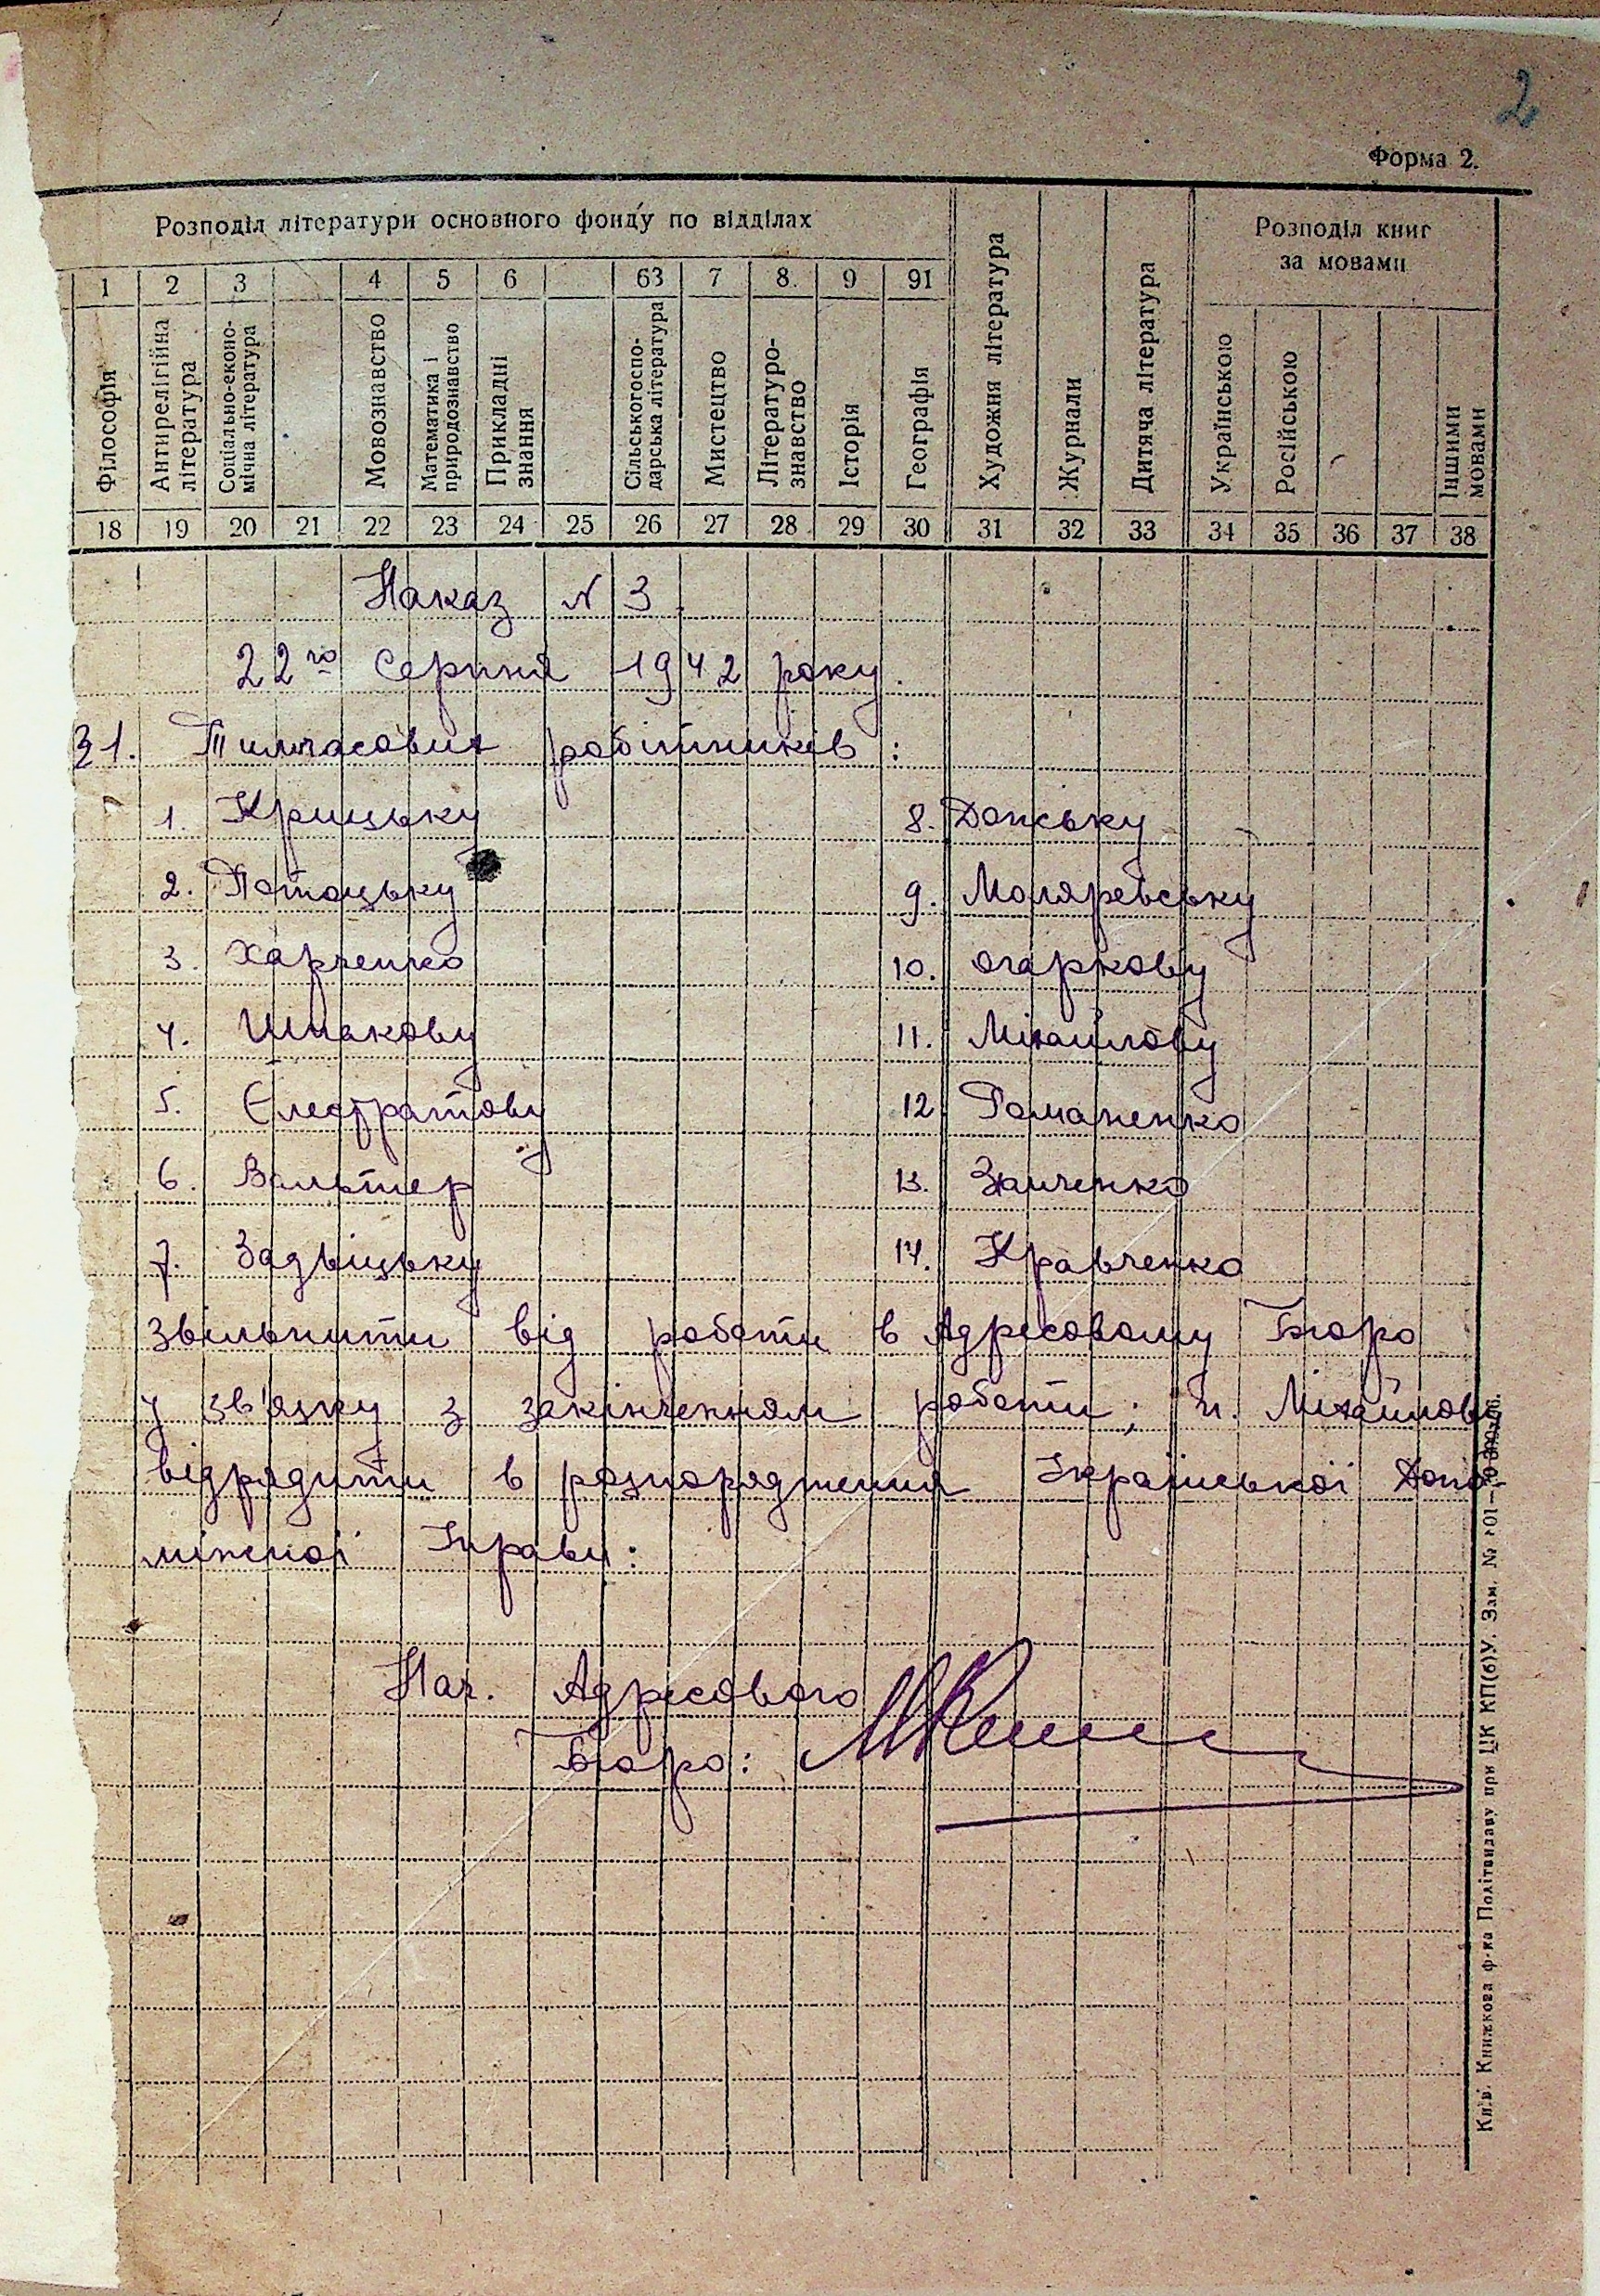 2
Форма 2.
Розподіл літератури основного фонду по відділах
Розподіл книг
за мовами
1 2 3 4 5 6 63 7 8. 9 91
Філософія
Антирелігійна
література
Соціально-еконо-
мічна література
Мовознавство
Математика і
природознавство
Прикладні
знання
Сільськогоспо-
дарська література
Мистецтво
Літературо-
знавство
Історія
Географія
Художня література
Журнали
Дитяча література
Українською
Російською
Іншими
мовами
18 19 20 21 22 23 24 25 26 27 28 29 30 31 32 33 34 35 36 37 38
Наказ № 3
22го Серпня 1942 року.
§1. Тимчасових робітників:
1. Крицьку
2. Потоцьку
3. Харченко
4. Шпакову
5. Єлеф
6. Вальтер
7. Задвіцьку
8. Донську
9. Моляревську
10. Огаркову
11. Міхайлову
12 Романенко
13. Заиченко
14. Кравченко
звільнити від роботи в Адресовому Бюро
у зв'язку з закінченням роботи; п. Міхайлову
відрядити в розпорядження Української Допо
міжної Управи:
Нач. Адресового
Бюро:
Київ. Книжкова ф-ка Політвидаву при ЦК КП(б)У. Зам. №